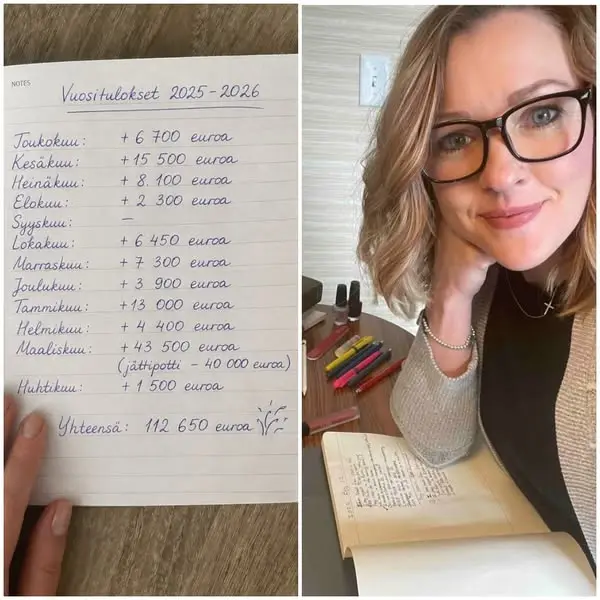 NOTES
Vuositulokset 2025-2026
Toukokuu: + 6 700 euroa
Kesäkuu: + 15 500 euroa
Heinäkuu: + 8. 100 euroa
Elokuu: + 2 300 euroa
Syyskuu: –
Lokakuu: + 6 450 euroa
Marraskuu: + 7 300 euroa
Joulukuu: + 3 900 euroa
Tammikuu: +13 000 euroa
Helmikuu: + 4 400 euroa
Maaliskuu: + 43 500 euroa
(jättipotti – 40 000 euroa)
Huhtikuu: + 1 500 euroa
Yhteensä: 112 650 euroa